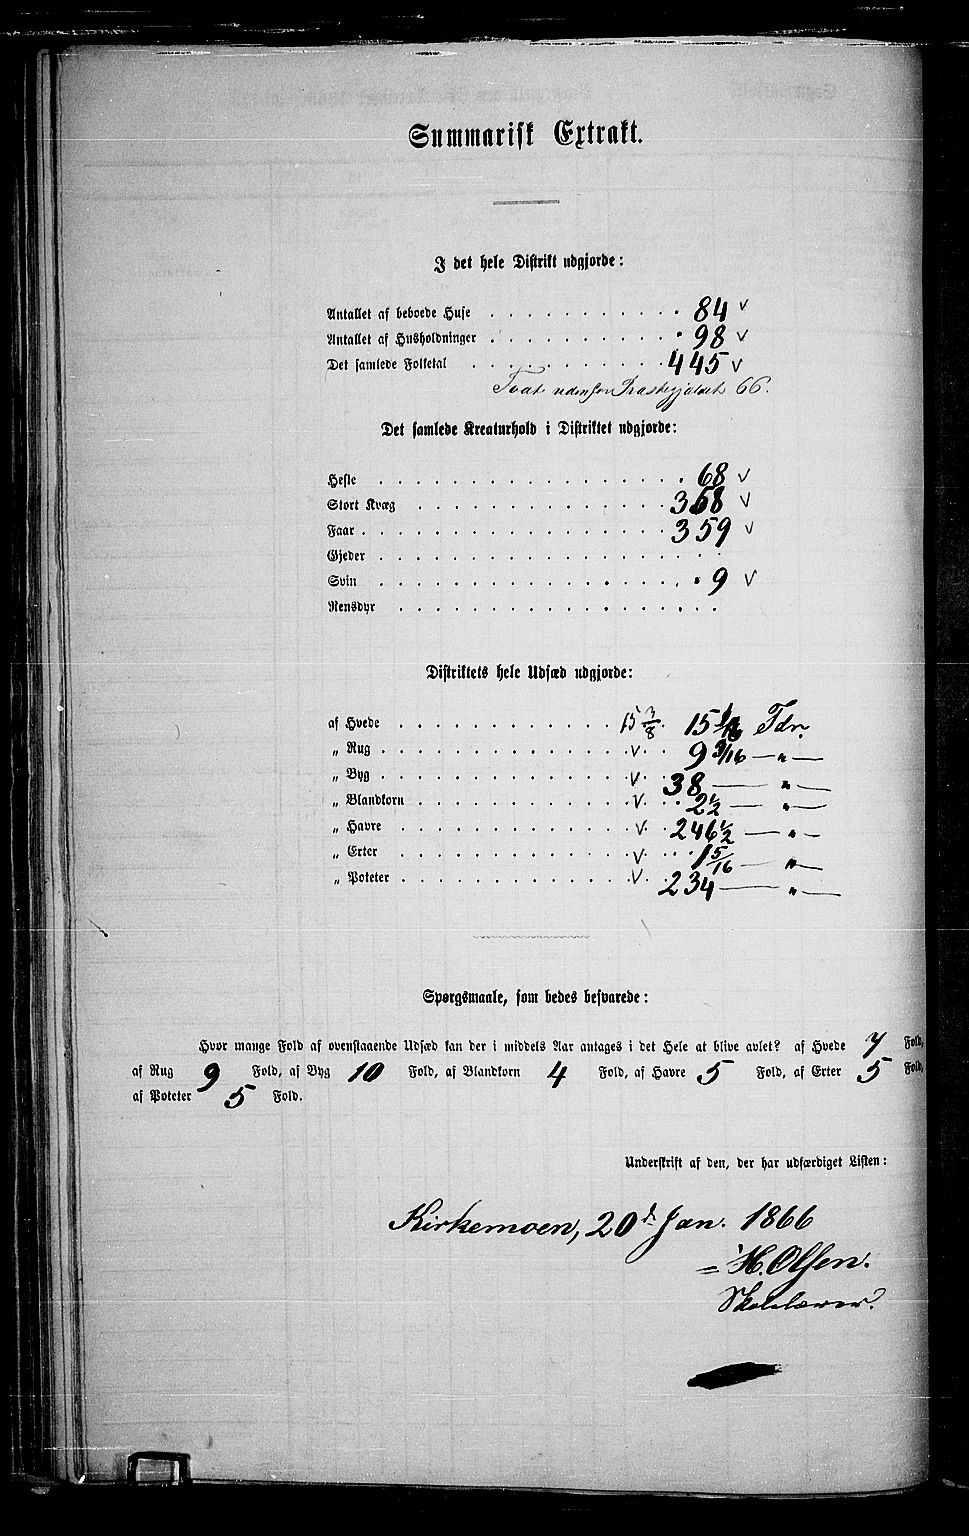 Summarisk Extrakt.
I det hele Distrikt udgjorde:
Antallet af beboede Huse . . . . . . . . . . 84 v
Antallet af Husholdninger . . . . . . . . . . 98 v
Det samlede Folketal . . . . . . . . . . 445 v
66.
Det samlede Kreaturhold i Distriktet udgjorde:
Heste . . . . . . . . . . 68 v
Stort Kvæg . . . . . . . . . . 368 v
Faar . . . . . . . . . . 359 v
Gjeder . . . . . . . . . .
Svin . . . . . . . . . . 9 v
Rensdyr . . . . . . . . . .
Distriktets hele Udsæd udgjorde:
af Hvede . . . . . . . . . . 15 3/8 15 Tdr.
„ Rug . . . . . . . . . . v 9 3/16 — „ —
„ Byg . . . . . . . . . . v 38 — „ —
„ Blandkorn . . . . . . . . . . v 2 1/2 — „ —
„ Havre . . . . . . . . . . v 246 1/2 — „ —
„ Erter . . . . . . . . . . v 1 5/16 — „ —
„ Poteter . . . . . . . . . . v 234 — „ —
Spørgsmaale, som bedes besvarede:
Hvor mange Fold af ovenstaaende Udsæd kan der i middels Aar antages i det Hele at blive avlet? af Hvede 7 Fold,
af Rug 9 Fold, af Byg 10 Fold, af Blandkorn 4 Fold, af Havre 5 Fold, af Erter 5 Fold,
af Poteter 5 Fold.
Underskrift af den, der har udfærdiget Listen:
Kirkemoen, 20d Jan. 1866
H. Olsen.
Skolelærer.